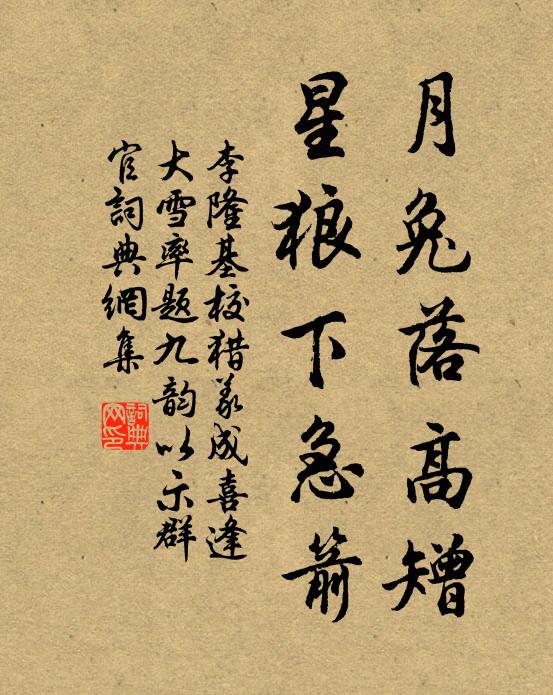 月兔落高矰
星狼下急箭
李隆基校猎义成喜逢
大雪率题九韵以示群
官詞典網集
詞典
网印